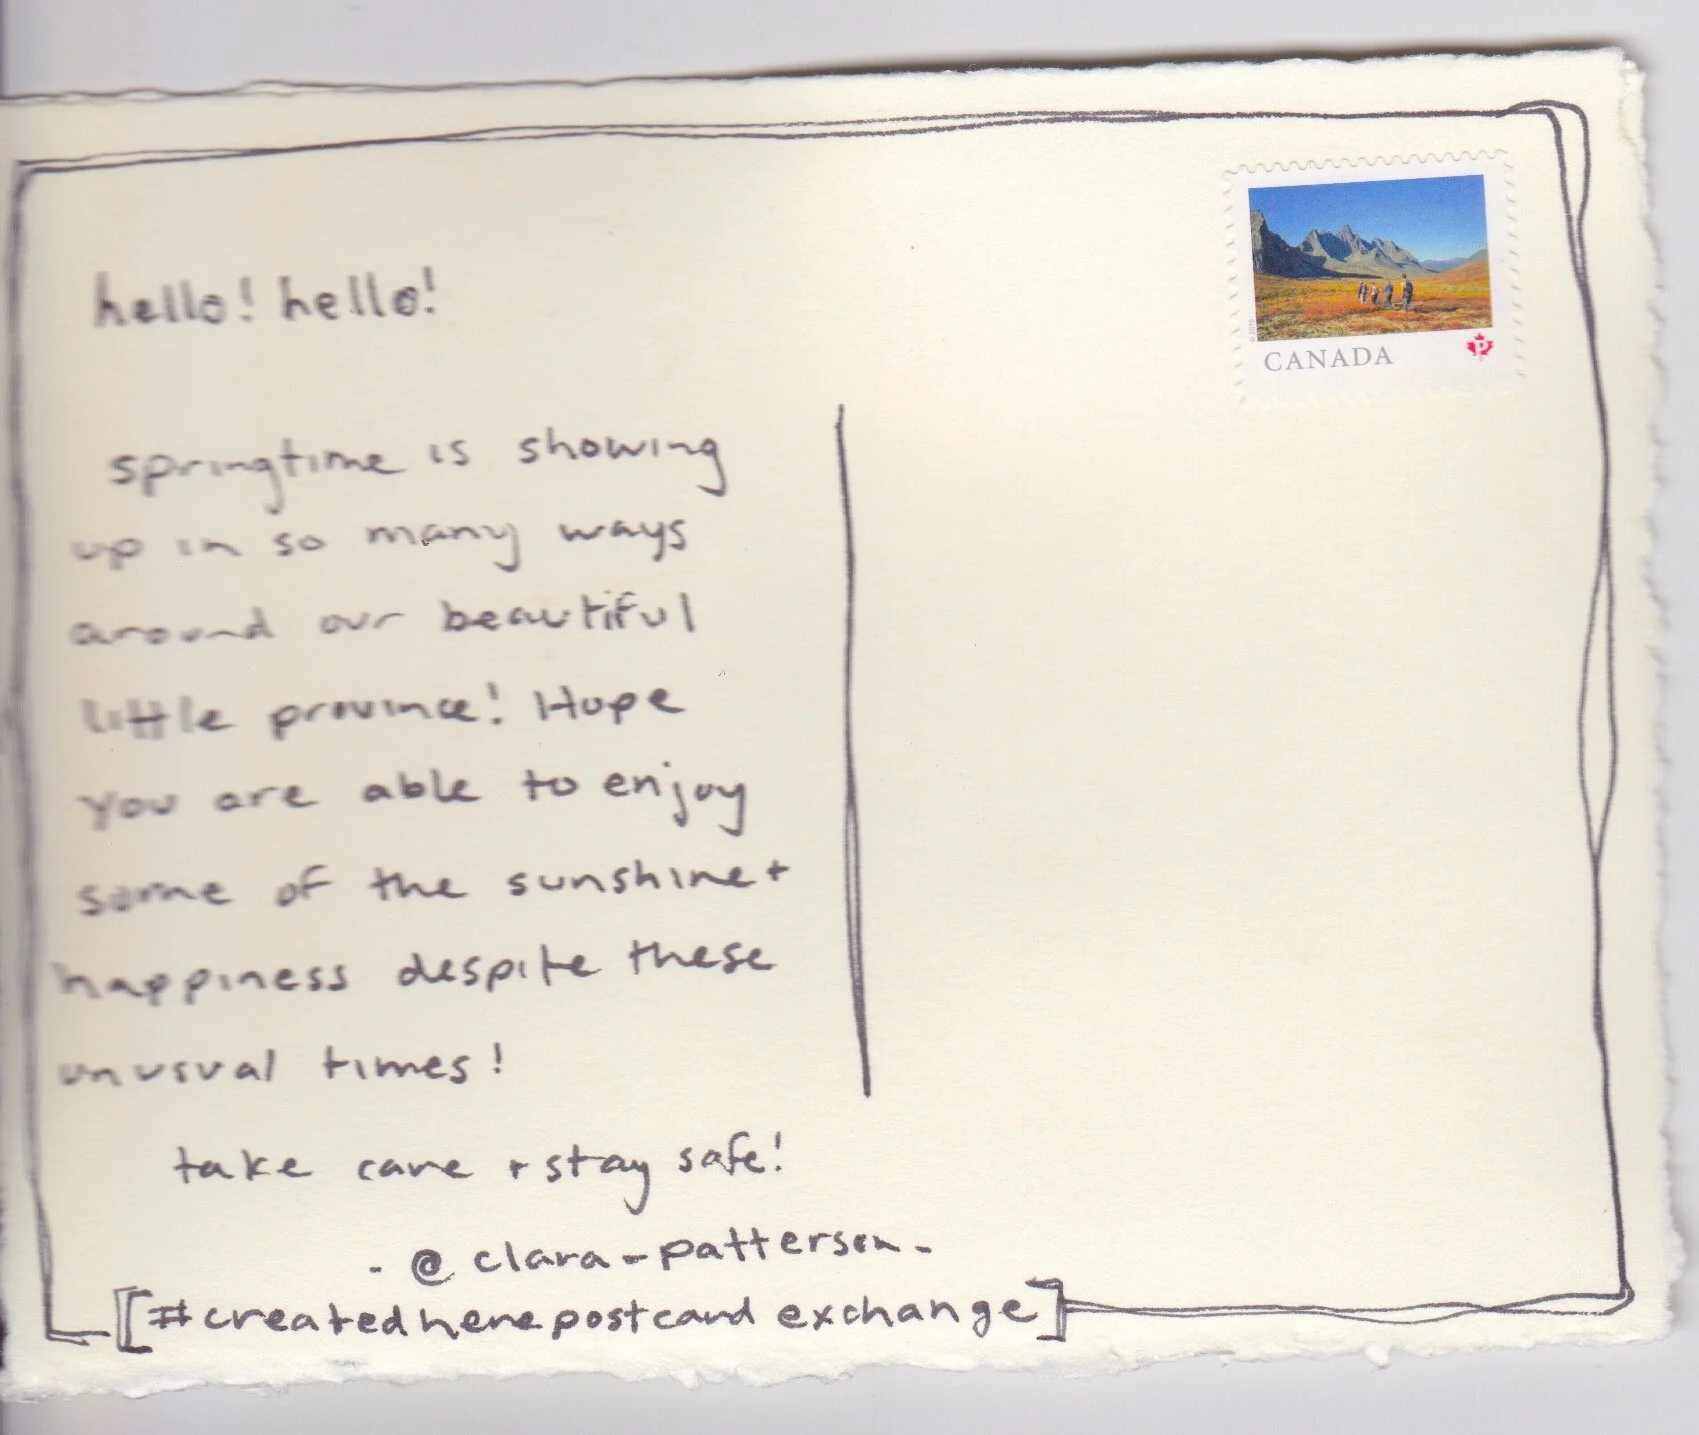 hello! hello!
springtime is showing
up in so many ways
around our beautiful
little province! Hope
you are able to enjoy
some of the sunshine +
happiness despite these
unusual times!
take care + stay safe!
- @clara_patterson_
[#createdherepostcardexchange]
CANADA
P